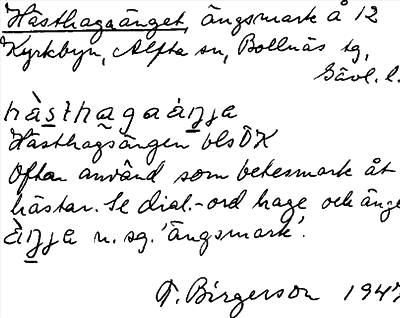 Hästhagaänget, ängsmark å 12
Kyrkbyn, Alfta sn, Bollnäs tg,
Gävl. l.
hàsthagaáŋŋa
Hästhagsängen blsÖK
Oftar använd som betesmark åt
hästar. Se dial.-ord hage och änge
àŋŋa n. sg. 'ängsmark'.
F. Birgerson 1947